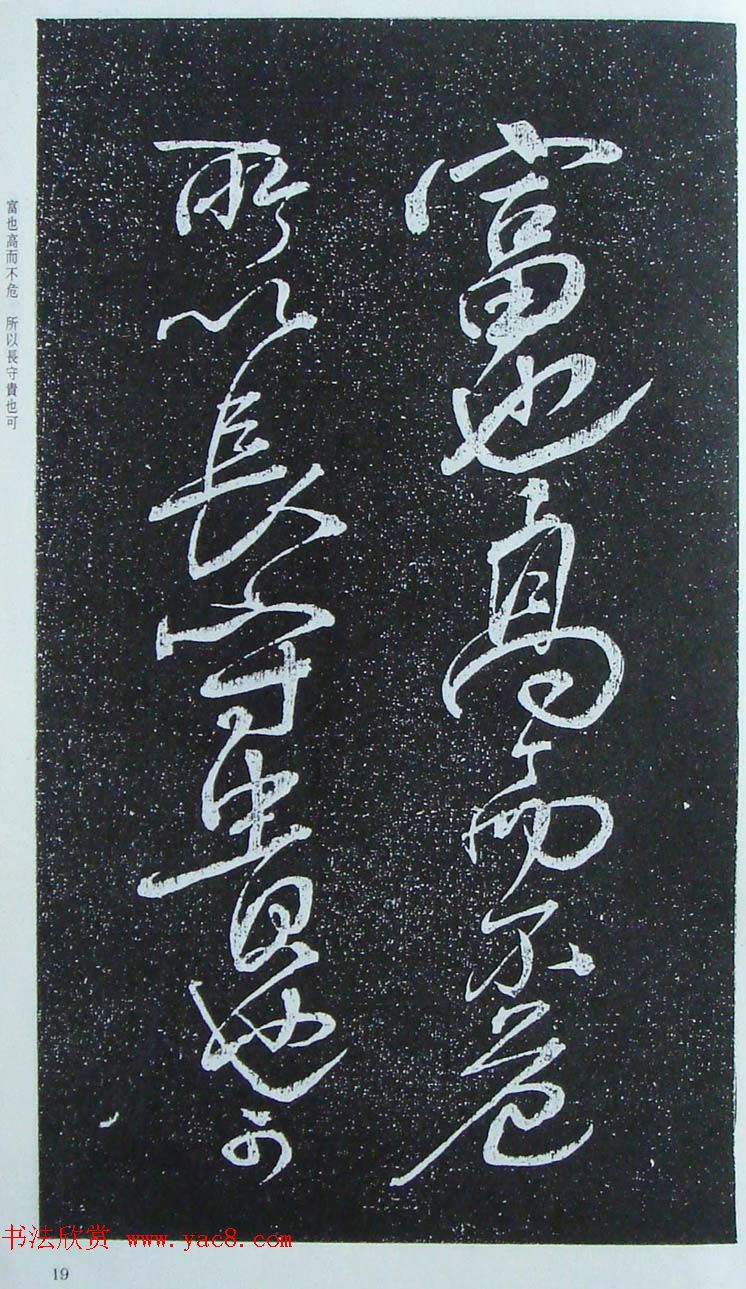 富也高而不危
所以長守貴也可
富也高而不危　所以長守貴也可
书法欣赏 www.yac8.com
19